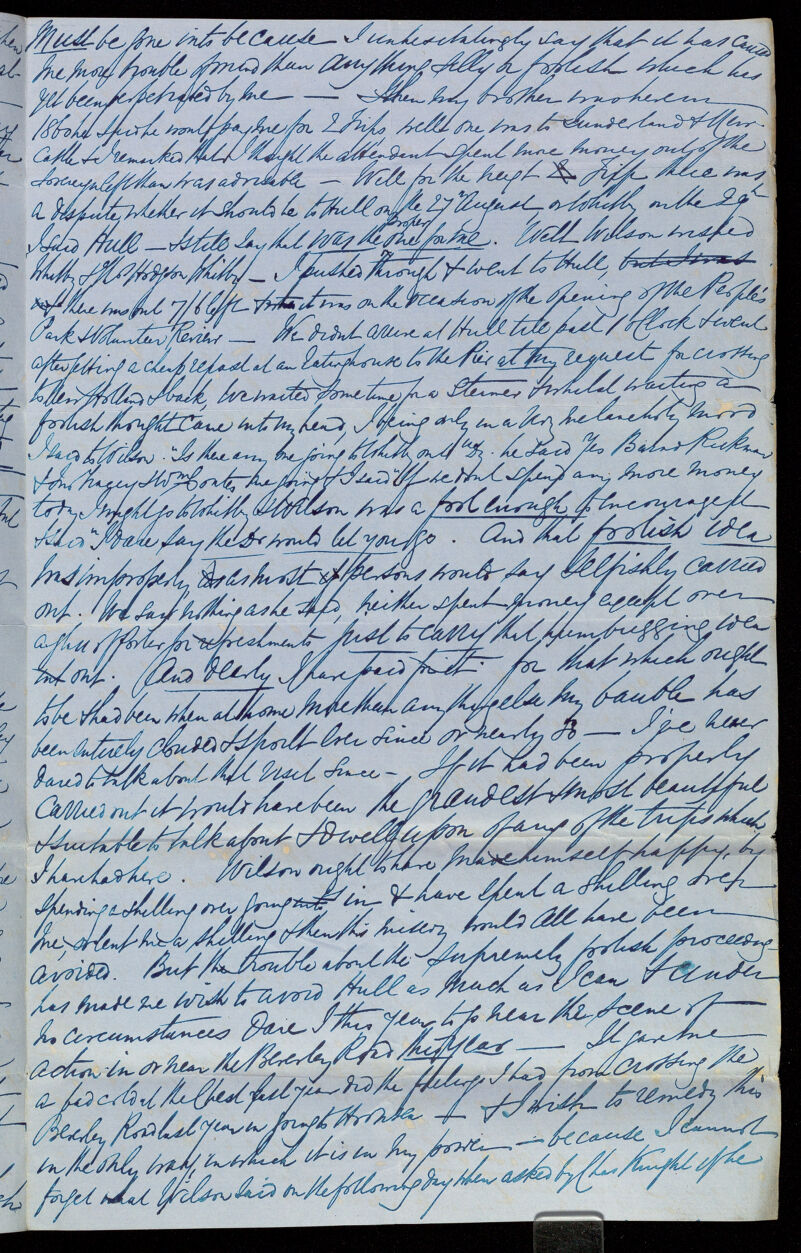 Must be gone into because I unhesitatingly say that it has caused
me more trouble of mind than anything silly or foolish which has
yet been perpetrated by me — When my brother was here in
1860 he said he would pay me for 2 Trips well one was to Sunderland & New-
castle & I remarked that I thought the attendant spent more money out of the
Sovereign left than was advisable — Well for the next Trip there was
a dispute whether it should be to Hull on the 27th August or Whitby on the 29th
I said Hull — I still say that was the proper one for me. Well Wilson wished
Whitby & Hodgson Whitby — I pushed through & went to Hull,
there was but 7/6 left it was on the occasion of the opening of the People's
Park & Volunteer Review — We didnt arrive at Hull till past 1 o'Clock & went
after getting a cheap repast at an Eatinghouse to the Pier at my request for crossing
to New Holland & back, we waited some time for a Steamer & whilst waiting a
foolish thought came into my head, I being only in a very melancholy mood
I said to Wilson "Is there any one going to Whitby on Wedy. he said Yes
& Wm Coates are going & I said "If we dont spend any more money
today I might go to Whitby & Wilson was a fool enough to encourage it
& said "I dare say the Dr would let you go. And that foolish idea
was improperly & as most persons would say selfishly carried
out. We say nothing as he said, neither spent money except over
a glass of porter for refreshments just to carry that humbugging idea
out. And dearly I have paid for it for that which ought
to be & had been when at home more than anything else my bauble has
been entirely clouded & spoilt ever since or nearly so — I've never
dared to talk about that visit since — If it had been properly
carried out it would have been the grandest & most beautiful
& suitable to talk about & dwell upon of any of the trips which
I have had here. Wilson ought to have made himself happy, by
spending a shilling over going in & have spent a shilling over
me, or lent me a shilling & then this misery would all have been
avoided. But the trouble about the supremely foolish proceeding
has made me wish to avoid Hull as much as I can & under
no circumstances dare I this year to go near the scene of
action in or near the Beverley Road this year — It gave me
a bad cold at the Chest last year did the feelings I had from crossing the
Beverley Road last year in going to Hornsea — & I wish to remedy this
in the only way in which it is in my power — because I cannot
forget what Wilson said on the following day when asked by Chas Knight if he